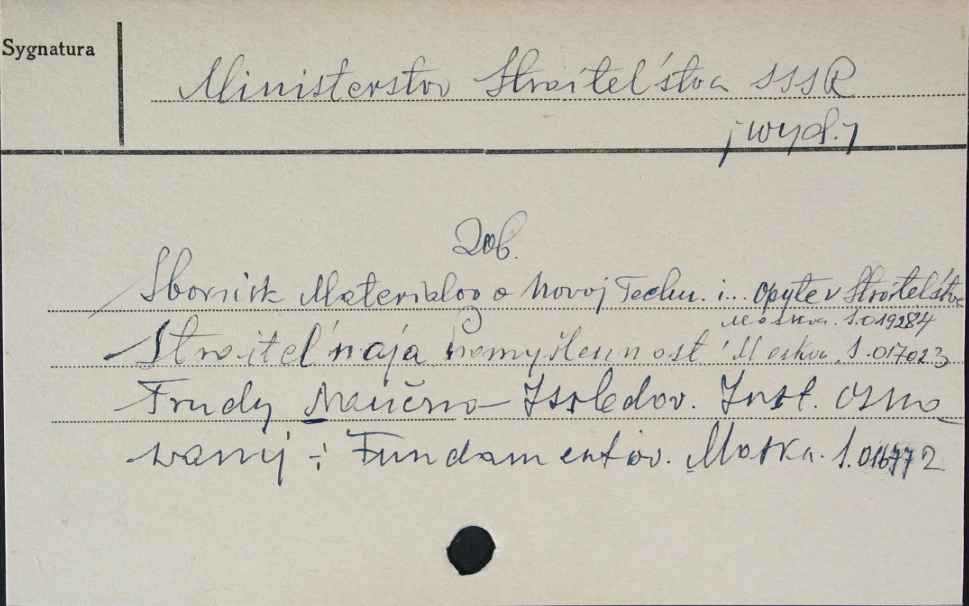 Sygnatura
Ministerstvo Stroitel'stva SSSR
/wyd./
Zob.
Sbornik Materialov o Novoj Techn. i... opyte v Stroitel'stve
Moskva. S.019284
Stroitel'naja Promyšlennost' Moskva. S.017023
Trudy Naučno-Issledov. Inst. Osno
wanij i Fundamentov. Moskva. S.016772